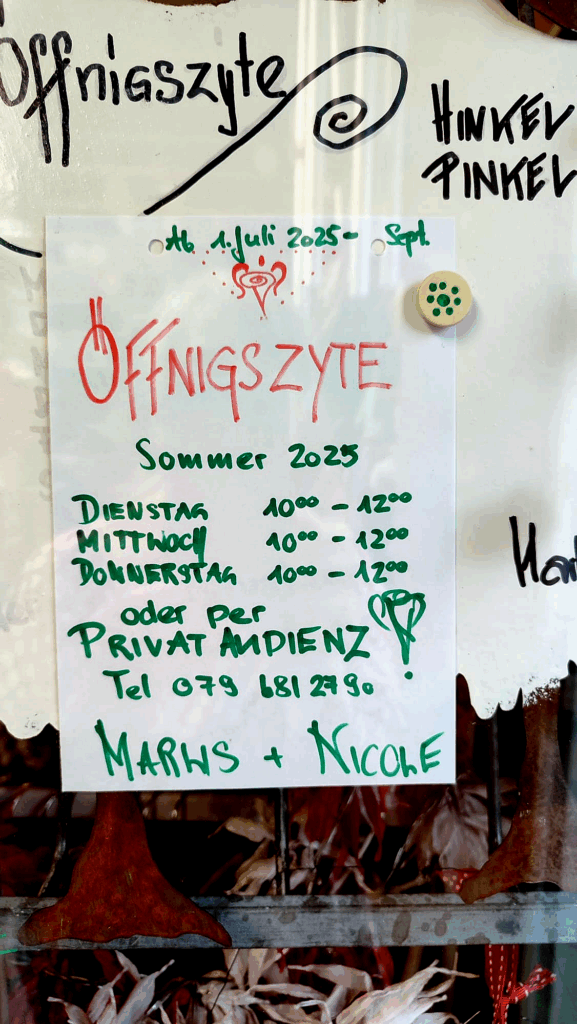 Öffnigszyte
HINKEL
PINKEL
Ab 1. Juli 2025 - Sept.
ÖFFNIGSZYTE
Sommer 2025
DIENSTAG 10⁰⁰ - 12⁰⁰
MITTWOCH 10⁰⁰ - 12⁰⁰
DONNERSTAG 10⁰⁰ - 12⁰⁰
oder per
PRIVAT AUDIENZ
Tel 079 681 27 90
MARKUS + NICOLE